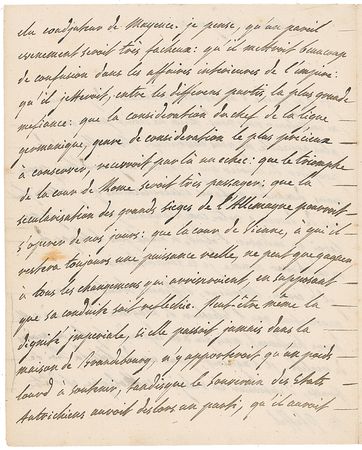 du coadjuteur de Mayence. je pense, qu'un pareil
evenement seroit très facheux: qu'il mettroit beaucoup
de confusion dans les affaires intérieures de l'empire:
qu'il jetteroit, entre les differens partis, la plus grande
mefiance: que la consideration du chef de la ligue
germanique, genre de consideration le plus précieux
à conserver, recevroit par là un echec: que le triomphe
de la cour de Rome seroit très passager: que la
secularisation des grands sieges de l'Allemagne pourroit
s'operer de nos jours: que la cour de Vienne, à qui il
restera toujours une puissance reelle, ne peut que gagner
à tous les changemens qui arriveroient, en supposant
que sa conduite soit reflechie. Peut être même la
dignité imperiale, si elle passoit jamais dans la
maison de Brandbourg, n'y apporteroit qu'un poids
lourd à soutenir, tandisque le Souverain des Etats
Autrichiens auroit deslors un parti, qu'il auroit